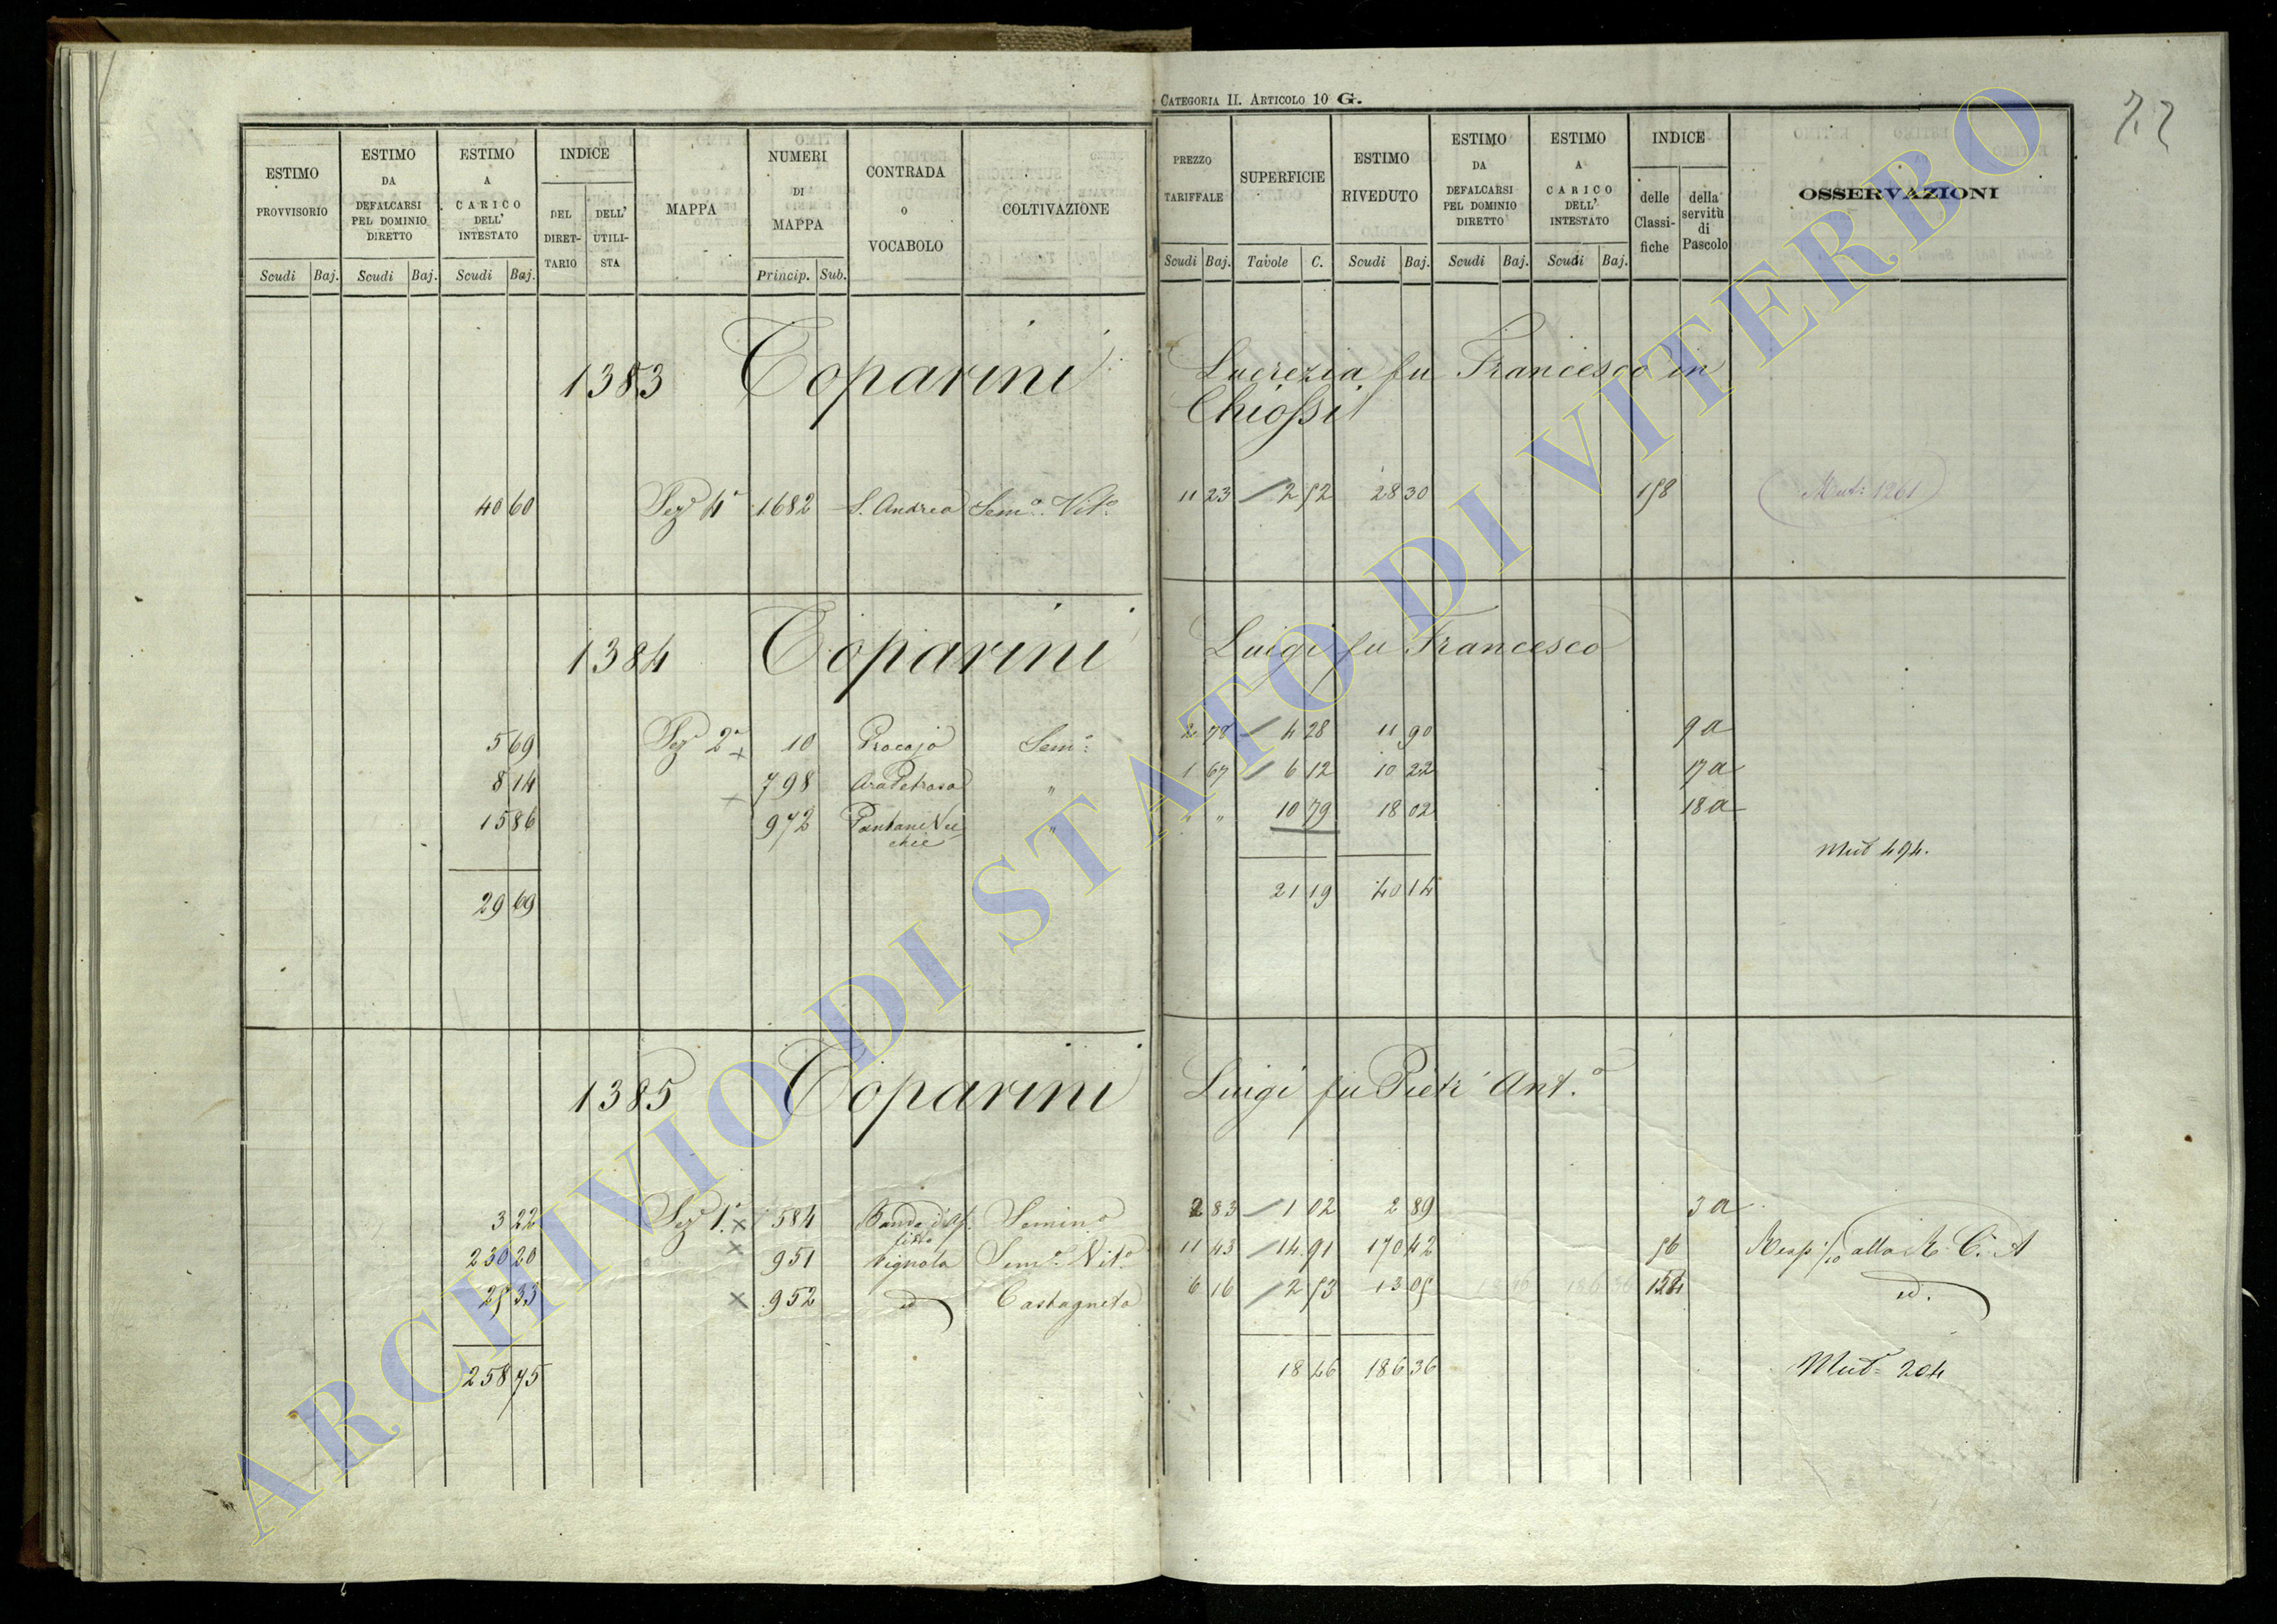 CATEGORIA II. ARTICOLO 10 G.
72
ESTIMO PROVVISORIO
ESTIMO DA DEFALCARSI PEL DOMINIO DIRETTO
ESTIMO A CARICO DELL' INTESTATO
INDICE
DEL DIRETTARIO
DELL' UTILISTA
MAPPA
NUMERI DI MAPPA
CONTRADA O VOCABOLO
COLTIVAZIONE
Scudi Baj. Scudi Baj. Scudi Baj. Princip. Sub.
PREZZO TARIFFALE
SUPERFICIE
ESTIMO RIVEDUTO
ESTIMO DA DEFALCARSI PEL DOMINIO DIRETTO
ESTIMO A CARICO DELL' INTESTATO
INDICE
delle Classifiche
della servitù di Pascolo
OSSERVAZIONI
Scudi Baj. Tavole C. Scudi Baj. Scudi Baj. Scudi Baj.
1383 Toparini Lucrezia fu Francesco in
Chiossi
40 60 Sez 4a 1682 S. Andrea Semo. Vito. 11 23 2 52 28 30 158 Mut: 1261
1384 Toparini Luigi fu Francesco
5 69 Sez 2a 10 Procojo Semo: 2 78 4 28 11 90 9a
8 14 798 Ara Petrosa " 1 67 6 12 10 22 17a
15 86 972 Pantane Vec " " " 10 79 18 02 18a
chie
Mut 494.
29 69 21 19 40 14
1385 Toparini Luigi fu Pietr' Anto.
3 22 Sez 1a. 584 Banda d'Af Semino 2 83 1 02 2 89 3a
fitto
230 20 951 Vignola Semo: Vito. 11 43 14 91 170 42 56 alla R. C. A
25 33 952 id Castagneto 6 16 2 53 13 05 128 id.
258 75 18 46 186 36 Mut= 204
ARCHIVIO DI STATO DI VITERBO